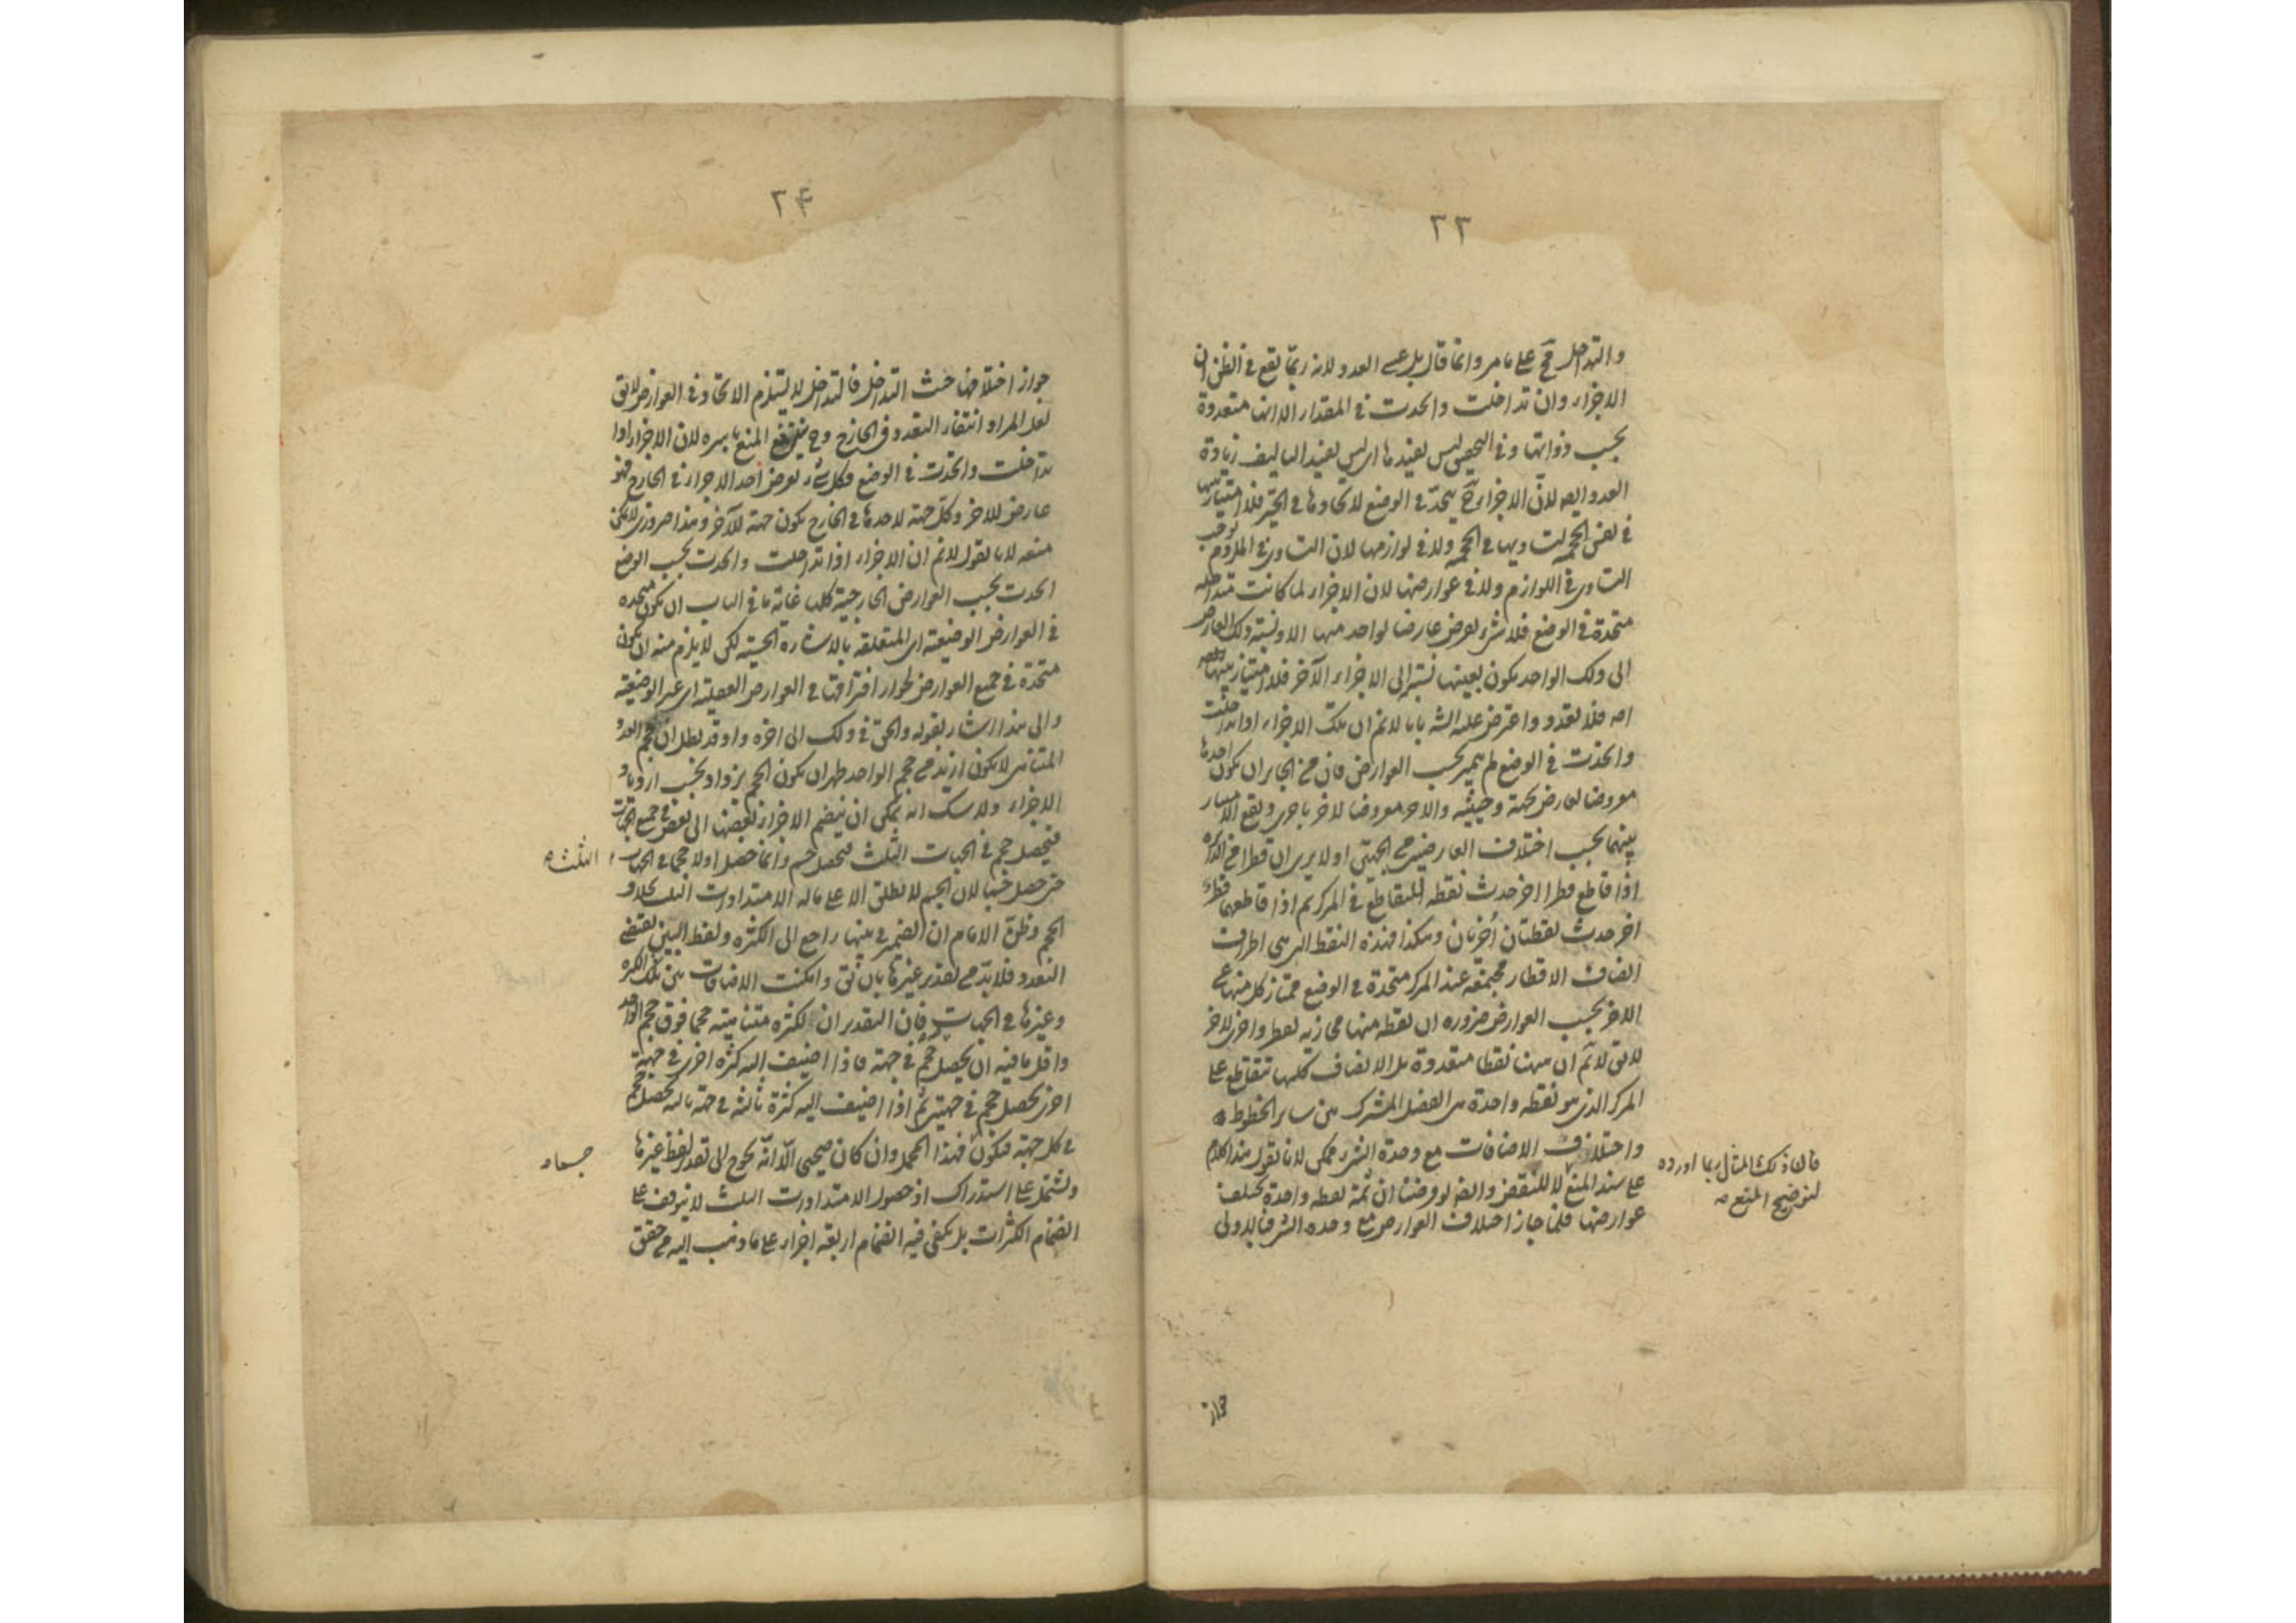 ٢٣
والتداخل مح على ما مر وانما قال بل عسى العدد لانه ربما يقع في الظن ان
الاجزاء وان تداخلت واتحدت في المقدار الا انها متعددة
بحسب ذواتها وفي التحقيق ليس يفيدها اى ليس يفيد التاليف زيادة
العدد ايضا لان الاجزاء ح يتحد في الوضع لاتحادها في الحيز فلا امتياز بينها
في نفس الحجمية لتساويها في الحجمية ولا في لوازمها لان التساوى في الملزوم يوجب
التساوى في اللوازم ولا في عوارضها لان الاجزاء لما كانت متداخلة
متحدة في الوضع فلا شىء يعرض عارضا لواحد منها الا ونسبة ذلك العارض
الى ذلك الواحد يكون بعينها نسبته الى الاجزاء الآخر فلا امتياز بينها
اصلا فلا تعدد واعترض عليه الشارح بانا لا نم ان تلك الاجزاء اذا تداخلت
واتحدت في الوضع لم يتميز بحسب العوارض فان من الجايز ان يكون احدها
معروضا لعارض بجهة وحيثية والاخر معروضا لاخر باخرى ويقع الامتياز
بينهما بحسب اختلاف العارضين من الجهتين اولا يرى ان قطرا من الدائرة
اذا قاطع قطرا اخر حدث نقطة التقاطع في المركز ثم اذا قاطعهما قطر
اخر حدث نقطتان أخريان وهكذا فهذه النقط التى هى اطراف
انصاف الاقطار مجتمعة عند المركز متحدة في الوضع ممتاز كل منها عن
الاخر بحسب العوارض ضرورة ان نقطة منها محاذية لقطر واخرى لاخر
لا يق لا نم ان ههنا نقطا متعددة بل الانصاف كلها تتقاطع على
المركز الذى هو نقطة واحدة هى الفصل المشترك بين ساير الخطوط
واختلاف الاضافات مع وحدة الشىء ممكن لانا نقول هذا كلام
على سند المنع لا للنقض وايضا لو فرضنا ان ثمة نقطة واحدة يختلف
عوارضها فلما جاز اختلاف العوارض مع وحدة الشىء فبالاولى
فان ذلك المثال ربما اورده
لتوضيح المنع منه
جواز
٢٤
جواز اختلافها حيث التداخل فالتداخل لا يستلزم الاتحاد في العوارض لا يق
لعل المراد انتفاء التعدد في الخارج وح يندفع المنع باسره لان الاجزاء اذا
تداخلت واتحدت في الوضع فكل شىء يعرض احد الاجزاء في الخارج فهو
عارض للاخر وكل جهة لاحدها في الخارج يكون جهة للآخر وهذا ضرورى لا يمكن
منعه لانا نقول لا نم ان الاجزاء اذا تداخلت واتحدت بحسب الوضع
اتحدت بحسب العوارض الخارجية كلها غاية ما في الباب ان يكون متحدة
في العوارض الوضعية اى المتعلقة بالاشارة الحسية لكن لا يلزم منه ان يكون
متحدة في جميع العوارض لجواز افتراقها في العوارض العقلية اى غير الوضعية
والى هذا اشار بقوله والحق في ذلك الى اخره واذ قد بطل ان حجم العدد
المتناهى لا يكون ازيد من حجم الواحد ظهر ان يكون الحجم يزداد بحسب ازدياد
الاجزاء ولا شك انه يمكن ان ينضم الاجزاء بعضها الى بعض في جميع الجهات
فيحصل حجم في الجهات الثلث فيحصل جسم وانما حصل اولا حجما في الجهات
حتى حصل جسما لان الجسم لا يطلق الا على ماله الامتدادات الثلث بخلاف
الحجم وظن الامام ان الضمير في بينها راجع الى الكثرة ولفظ البين يقتضى
التعدد فلا بد من تقدير غيرها بان يق وامكنت الاضافات بين تلك الكثرة
وغيرها في الجهات فان التقدير ان لكثرة متناهية حجما فوق حجم الواحد
واقل ما فيه ان يحصل حجم في جهة فاذا اضيف اليه كثرة اخرى في جهة
اخرى يحصل حجم في جهتين ثم اذا اضيف اليه كثرة ثالثة في جهة ثالثة يحصل حجم
في كل جهة فيكون فهذا المحمل وان كان صحيحا الا انه يحوج الى تقدير لفظ غيرها
ويشتمل على استدراك اذ حصول الامتدادات الثلث لا يتوقف على
انضمام الكثرات بل يكفى فيه انضمام اربعة اجزاء على ما ذهب اليه من حقق
الثلثة
جسما